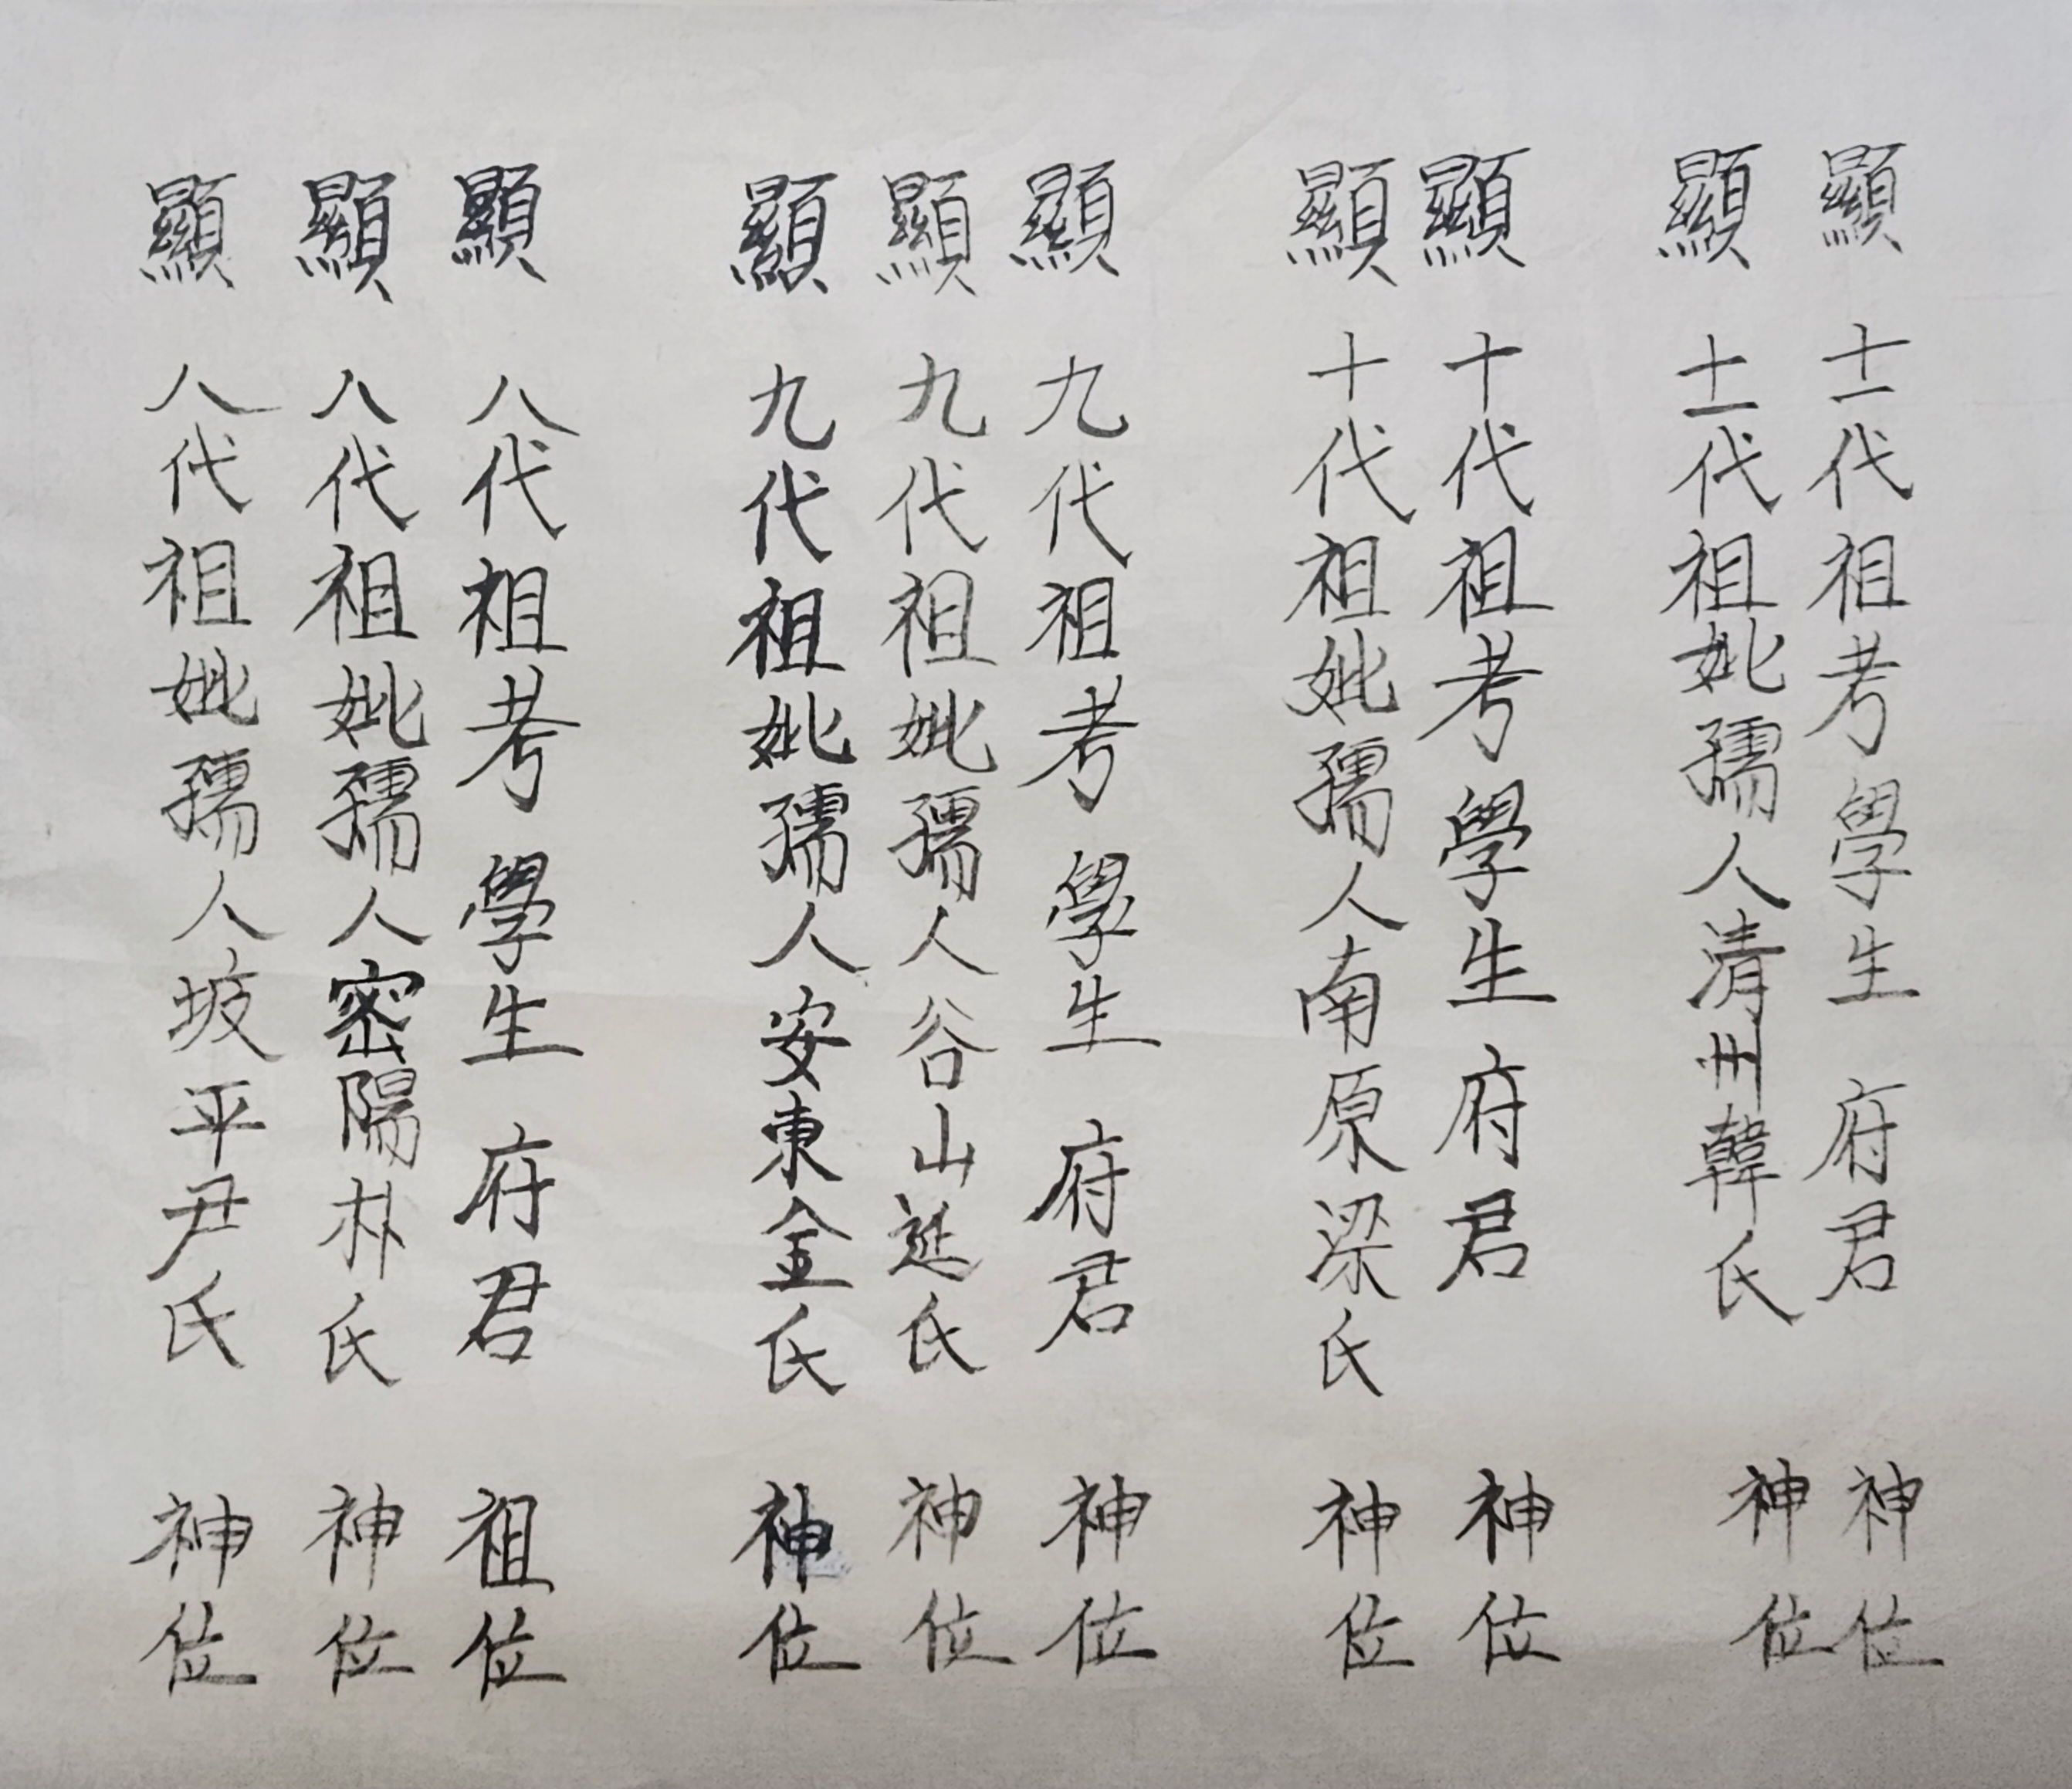 顯 十一代祖考 學生 府君 神位
顯 十一代祖妣孺人清州韓氏 神位
顯 十代祖考 學生 府君 神位
顯 十代祖妣孺人南原梁氏 神位
顯 九代祖考 學生 府君 神位
顯 九代祖妣孺人谷山延氏 神位
顯 九代祖妣孺人安東金氏 神位
顯 八代祖考 學生 府君 祖位
顯 八代祖妣孺人密陽朴氏 神位
顯 八代祖妣孺人坡平尹氏 神位